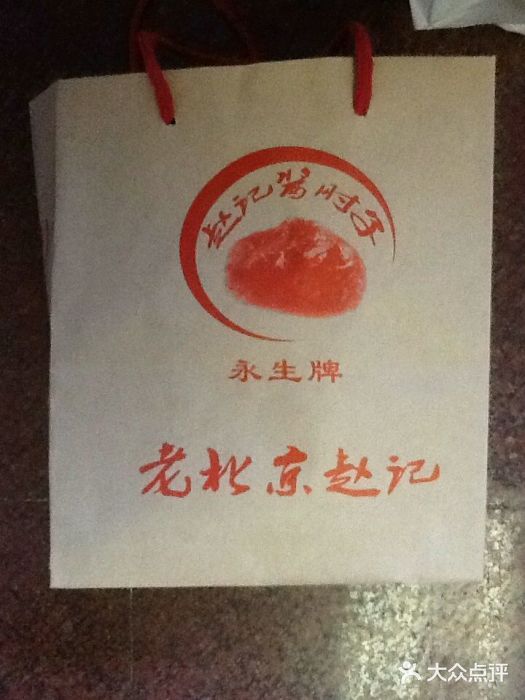 赵记酱肘子
永生牌
老北京赵记
大众点评